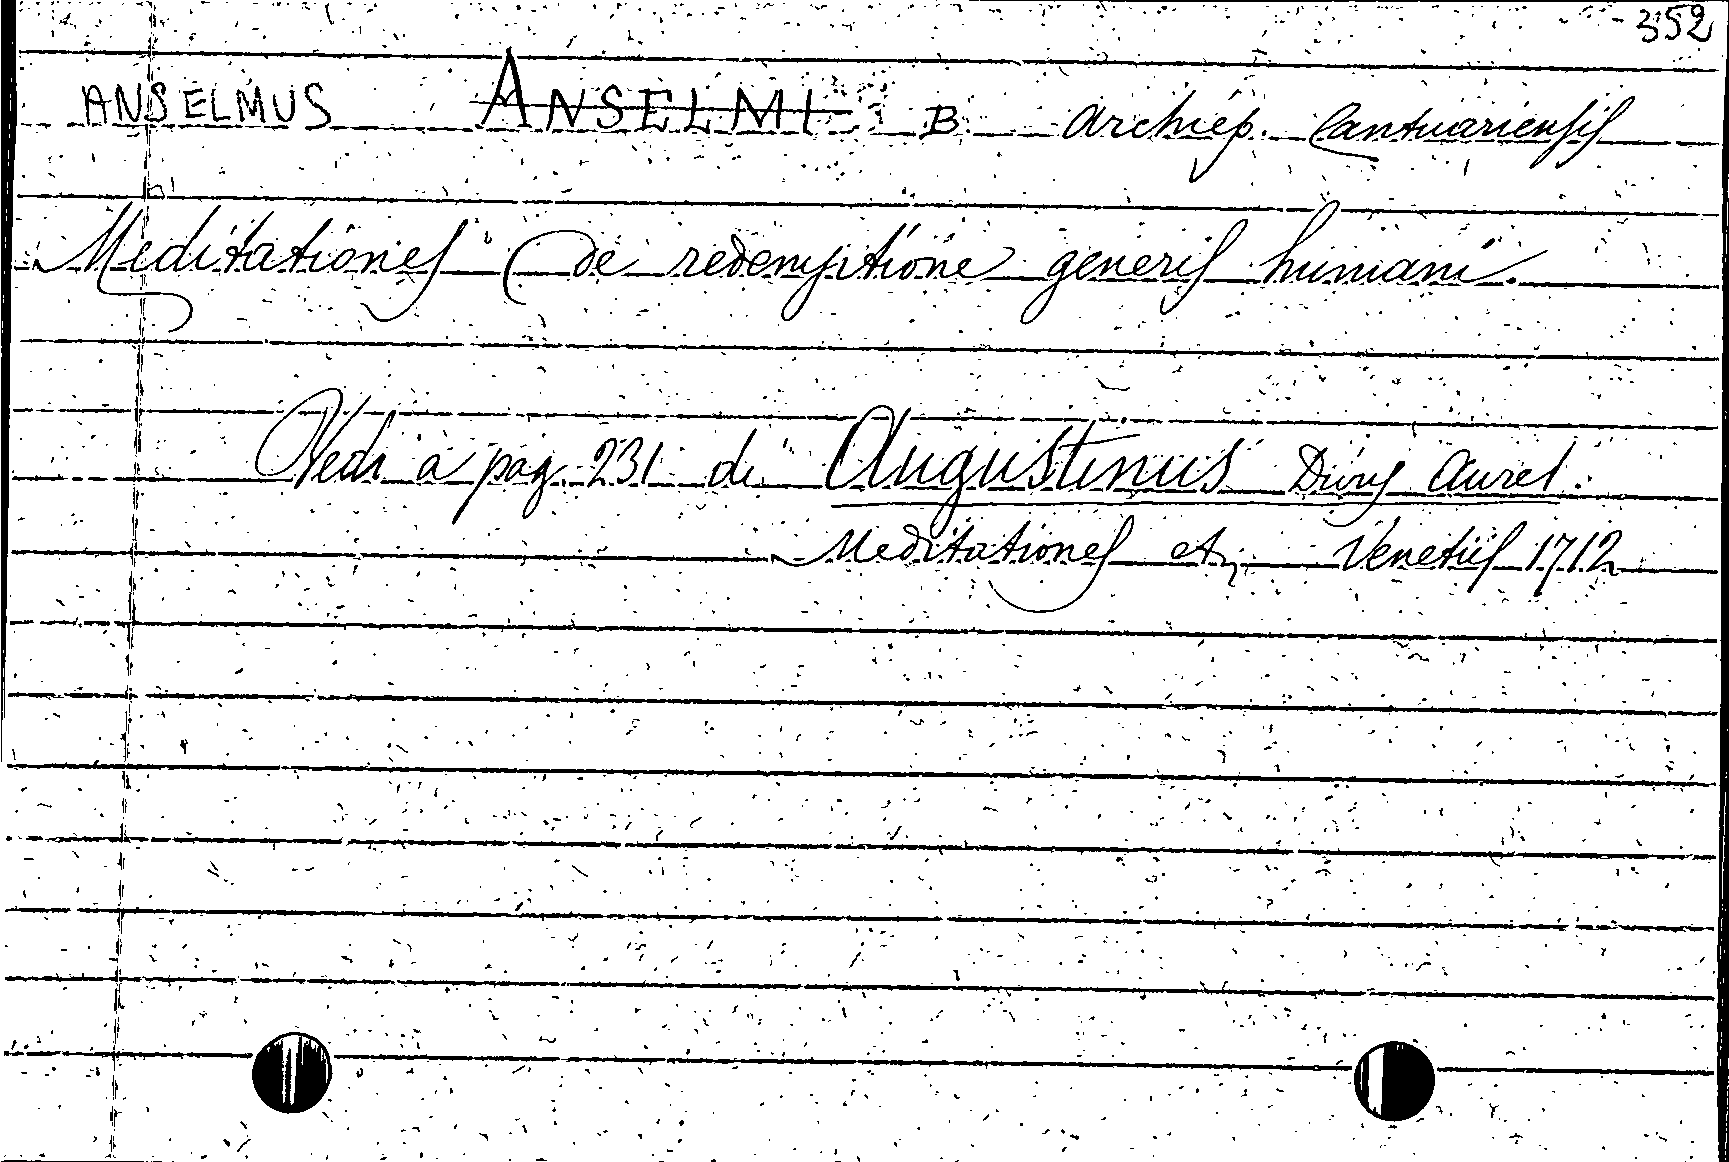 352
ANSELMUS ANSELMI B. Archiep. Cantuariensis
Meditationes De redemptione generis humani.
Vedi a pag. 231 di Augustinus Divus Aurel.
Meditationes et, Venetiis 1712